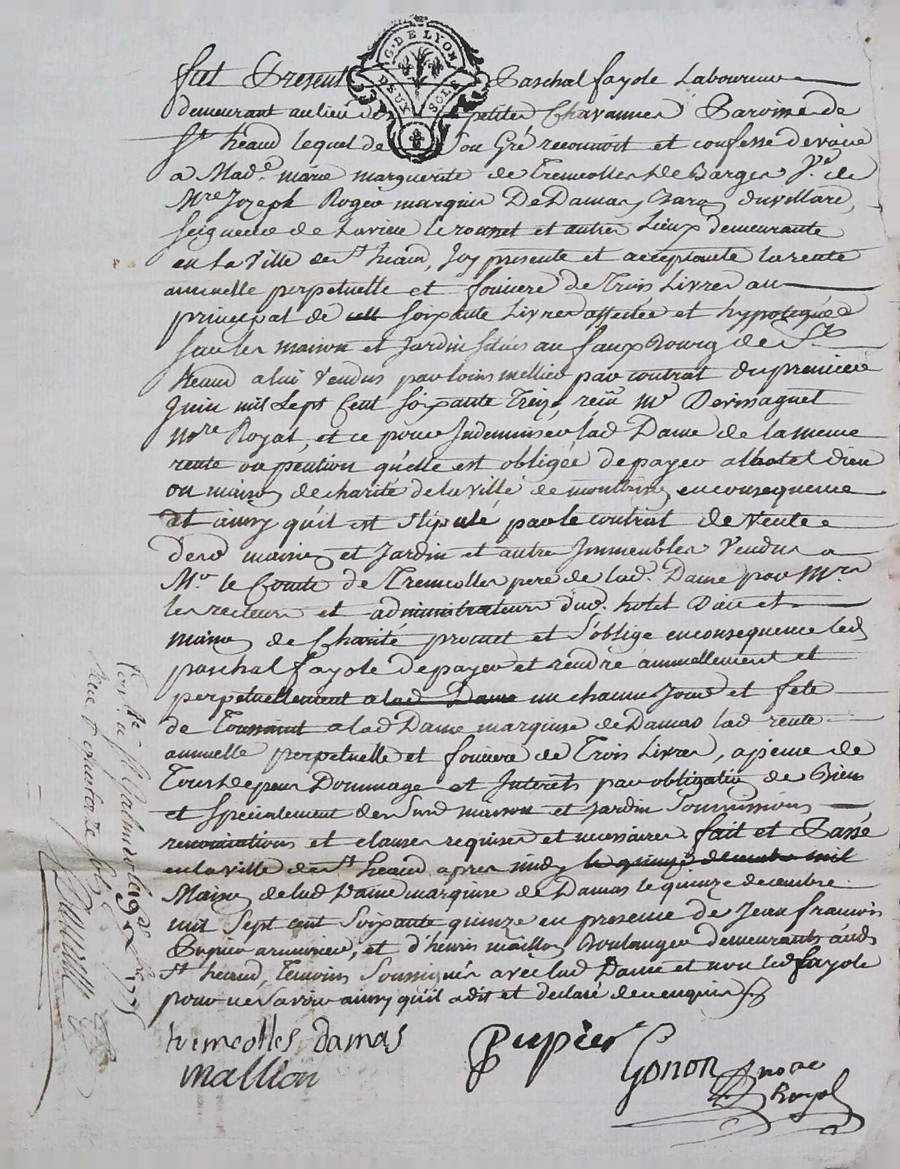 G. DE LYON
DEUX SOLS
fut Present Paschal fayole Laboureur
demeurant au lieu de petites Chavannes Paroisse de
St heand lequel de son Gré reconnoit et confesse devoir
a Made. marie marguerite de Tremeolles de Barges Ve. de
Mre Jozeph Roger marquis De Damas, Baron duvillars,
seigneur de Laviere le rousset et autres Lieux demeurante
en la Ville de St heand, Icy presente et acceptante la rente
annuelle perpetuelle et fonciere de Trois Livres au
principal de soixante Livres affectée et hypotequée
sur les maison et Jardin situés au fauxBourg de St
heand a lui Vendus par loüis mellier par contrat du premier
Juin mil Sept Cent soixante Treize, recu Me
nore Royal, et ce pour Indemniser lad Dame de la meme
rente ou pention qu'elle est obligée de payer a lhotel dieu
ou maison de charité de la ville de montbrison en consequence
et ainsy qu'il est stipulé par le contrat de Vente
desd maison et Jardin et autre Immeubles Vendus a
Mr le Comte de Tremeolles pere de lad. Dame par Mrs
les recteurs et administrateurs dud. hotel Dieu et
maison de Charité promet et s'oblige en consequence led
paschal fayole de payer et rendre annuellement et
perpetuellement a lad Dame un chacun Jour et fete
de Toussaint a lad Dame marquise de Damas lad rente
annuelle perpetuelle et fonciere de Trois Livres, a peine de
Tous depens Dommage et Interets par obligation de Biens
et specialement des susd maison et Jardin soumissions
renonciations et clauses requises et necessaires. fait et Passé
en la ville de St heand apres midy le quinze decembre mil
Maison de lad Dame marquise de Damas le quinze decembre
mil Sept cent Soixante quinze en presence de Jean francois
Pupier armurier, et d'henris maillon Boulanger demeurants aud
St heand, temoins soussignés avec lad Dame et non led fayole
pour ne savoir ainsy qu'il a dit et declaré de ce enquis
tremeolles damas
Pupier
mallion
Gonon nore
Royal
Conlle. a St Galmier le 19 Xbre 1775
Recu quatorze sols